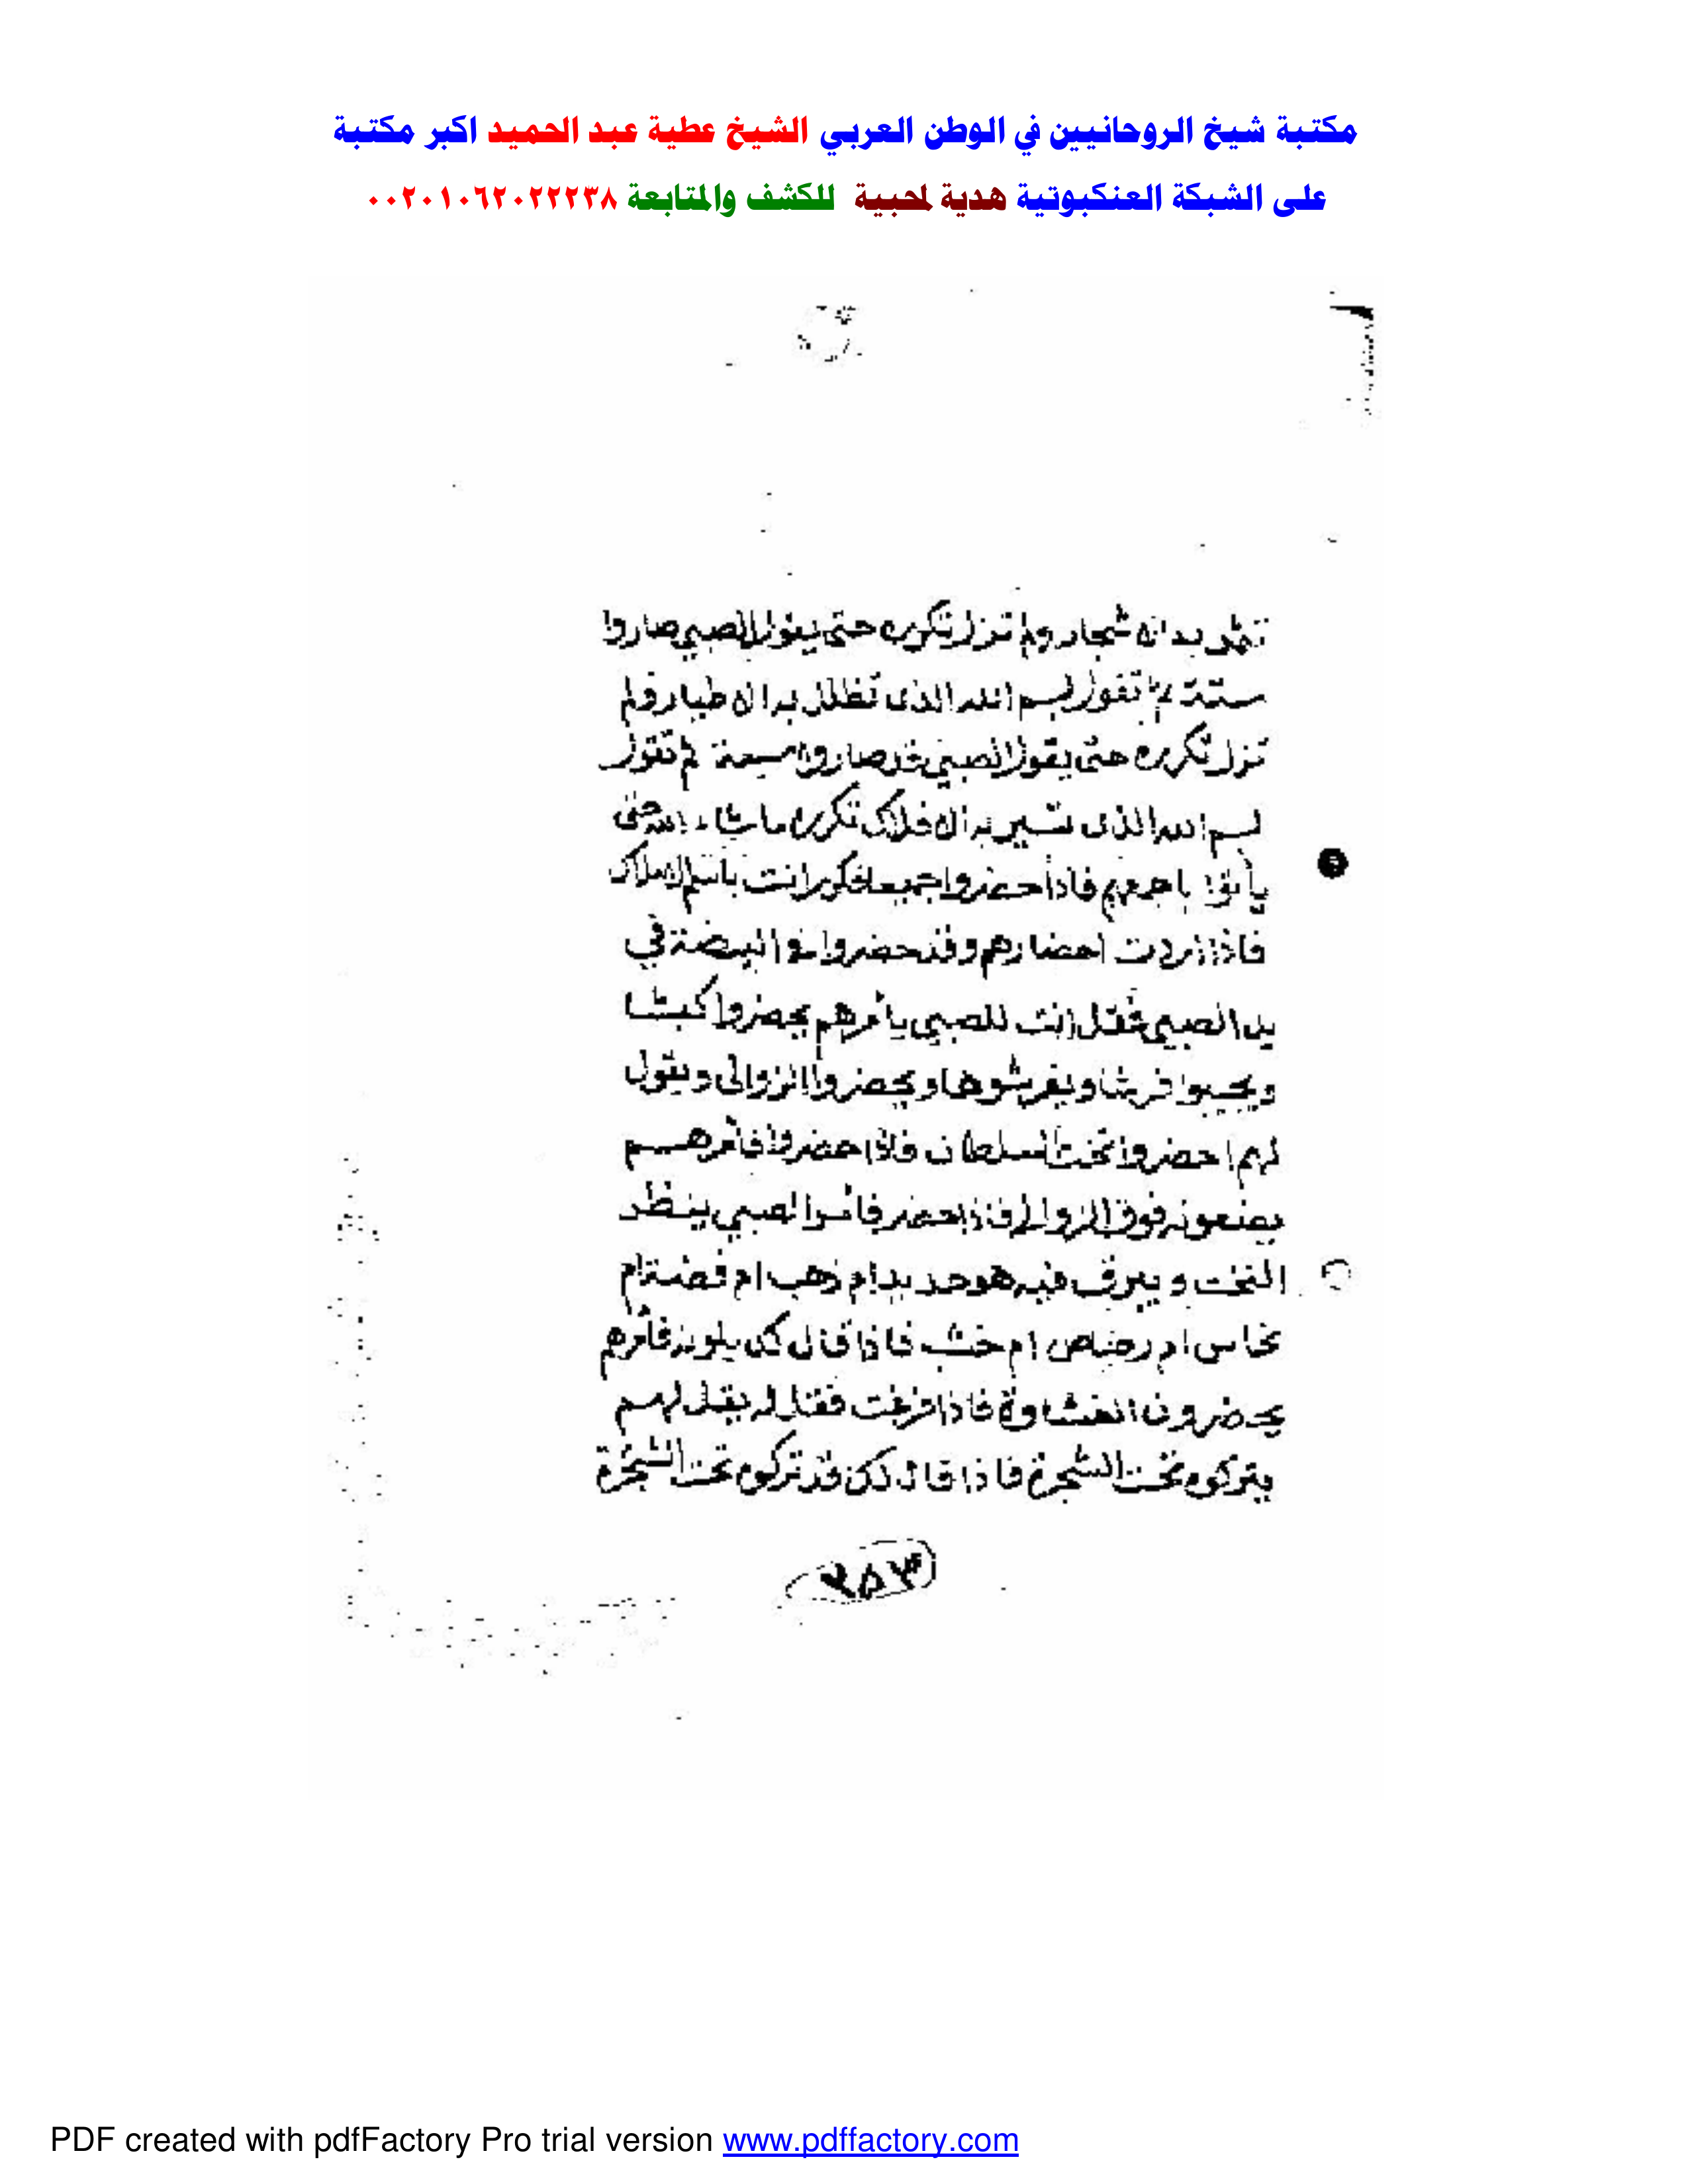 مكتبة شيخ الروحانيين في الوطن العربي الشيخ عطية عبد الحميد اكبر مكتبة
على الشبكة العنكبوتية هدية لمحبية للكشف والمتابعة ٠٠٢٠١٠٦٢٠٢٢٢٣٨
تزل تكرره حتى يقول الصبي صاروا
ستة ثم تقول بسم الله الذى تظلل به ال طيار ولم
تزل تكرره حتى يقول الصبي قد صاروا سبعة ثم تقول
بسم الله الذى تسير به ال فلاك تكرره ما شاء الله حتى
يأتوا باجمعهم فاذا حضروا جميعا انت باسم الاملاك
فاذا اردت احضارهم وقد حضروا البيضة في
يد الصبي فقل انت للصبي يأمرهم يحضروا كبشا
ويجيبوا فرشا ويفرشوها ويحضروا الزوالى ويقول
لهم احضروا تخت السلطان فاذا حضروا فأمرهم
يضعونه فوق الزوالى فاذا حضر فأمر الصبي ينظر
التخت و يعرف فيه هو حديد ام ذهب ام فضة ام
نحاس ام رصاص ام خشب فاذا قال لك فأمرهم
يحضرون فاذا فرغت فقل له يقل لهم
يتركوه تحت الشجرة فاذا قال لك قد تركوه تحت الشجرة
٢٥٣
PDF created with pdfFactory Pro trial version www.pdffactory.com